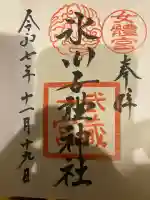 奉拝
女體宮
氷川女体神社
武蔵
令和七年十一月十九日